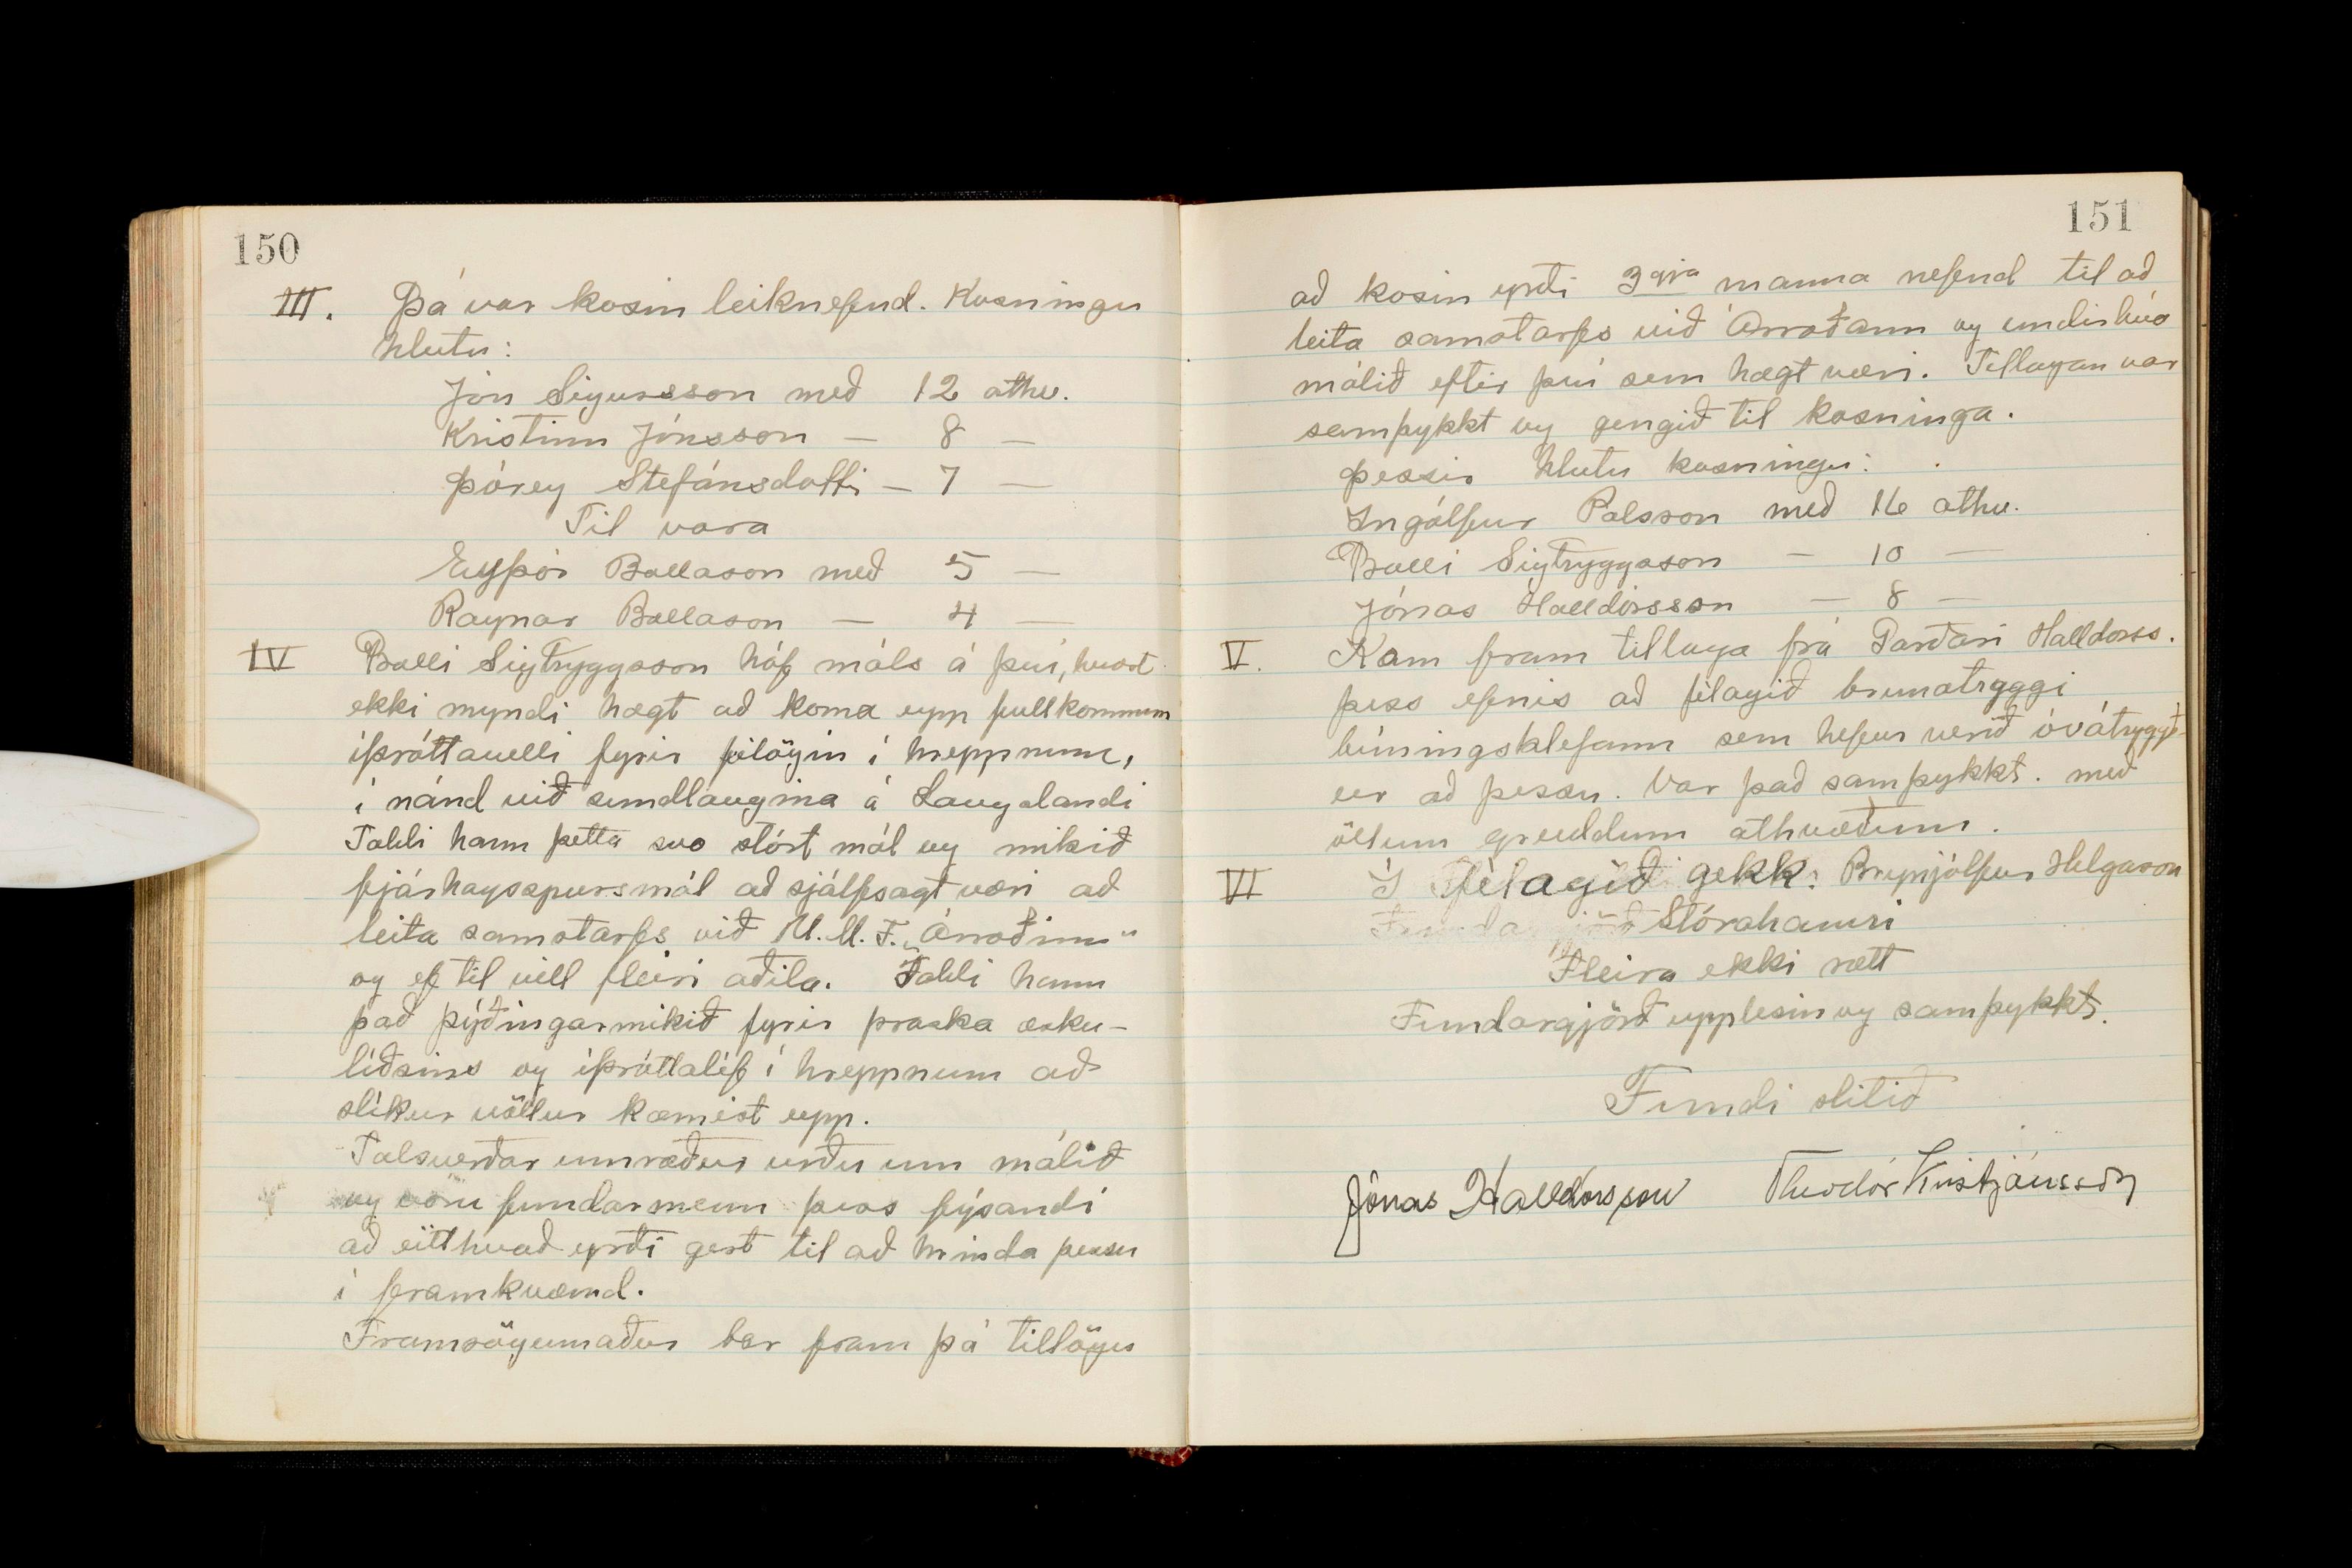 150
III. Þá var kosin leiknefnd. Kosningu
hlutu:
Jón Sigursson með 12 athv.
Kristinn Jónsson — 8 —
Þórey Stefánsdottir — 7 —
Til vara
Eyþór Ballason með 5 —
Ragnar Ballason — 4 —
IV Balli Sigtryggsson hóf máls á því, hvort
ekki myndi hægt að koma upp fullkomnum
íþróttavelli fyrir félögin í hreppnum,
í nánd við sundlaugina á Laugalandi
Taldi hann þetta svo stórt mál og mikið
fjárhagsspursmál að sjálfsagt væri að
leita samstarfs við U.M.F. „Árroðinn"
og ef til vill fleiri aðila. Taldi hann
það þýðingarmikið fyrir þroska æsku-
liðsins og íþróttalíf í hreppnum að
slíkur völlur kæmist upp.
Talsverðar umræður urðu um málið
og voru fundarmenn þess fýsandi
að eitthvað yrði gert til að hrinda þessu
í framkvæmd.
Framsögumaður bar fram þá tillögu
151
að kosin yrði 3gja manna nefnd til að
leita samstarfs við Árroðann og undirbúa
málið eftir því sem hægt væri. Tillagan var
samþykkt og gengið til kosninga.
Þessir hlutu kosningu:
Ingólfur Palsson með 16 athv.
Balli Sigtryggsson — 10 —
Jónas Halldórsson — 8 —
V. Kom fram tillaga frá Garðari Halldorss.
þess efnis að félagið brunatryggi
búningsklefann sem hefur verið óvátryggð-
ur að þessu. Var það samþykkt. með
öllum greiddum athvæðum.
VI Í félagið gekk: Brynjólfur Helgason
Stórahamri
Fleira ekki rætt
Fundargjörð upplesin og samþykkt.
Fundi slitið
Jónas Halldórsson Theodór Kristjánsson